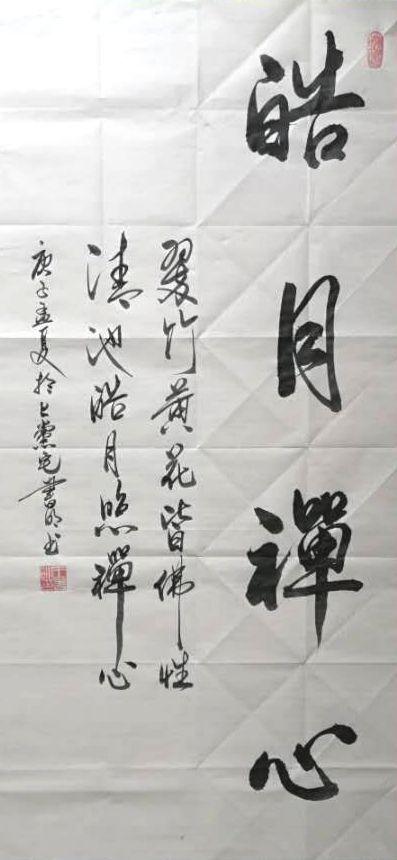 皓月禪心
翠竹黄花皆佛性
清池皓月照禪心
庚子孟夏於上黨